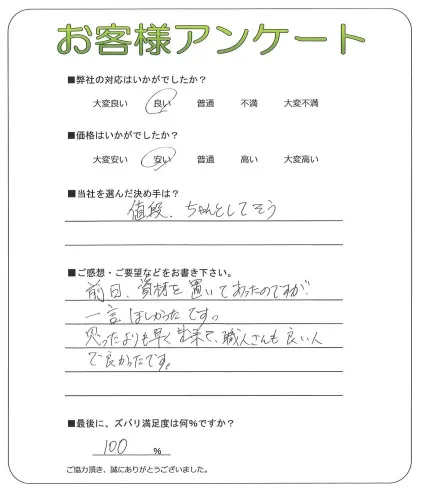 お客様アンケート
■弊社の対応はいかがでしたか？
大変良い 良い 普通 不満 大変不満
■価格はいかがでしたか？
大変安い 安い 普通 高い 大変高い
■当社を選んだ決め手は？
値段、ちゃんとしてそう
■ご感想・ご要望などをお書き下さい。
前日、資材を置いてあったのですが
一言ほしかったです。
思ったよりも早く出来て、職人さんも良い人
で良かったです。
■最後に、ズバリ満足度は何％ですか？
100 ％
ご協力頂き、誠にありがとうございました。